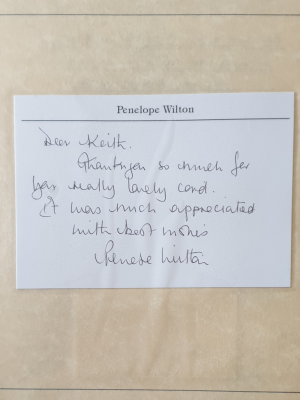 Penelope Wilton
Dear Keith.
Thankyou so much for
your really lovely card.
It was much appreciated
with best wishes
Penelope Wilton